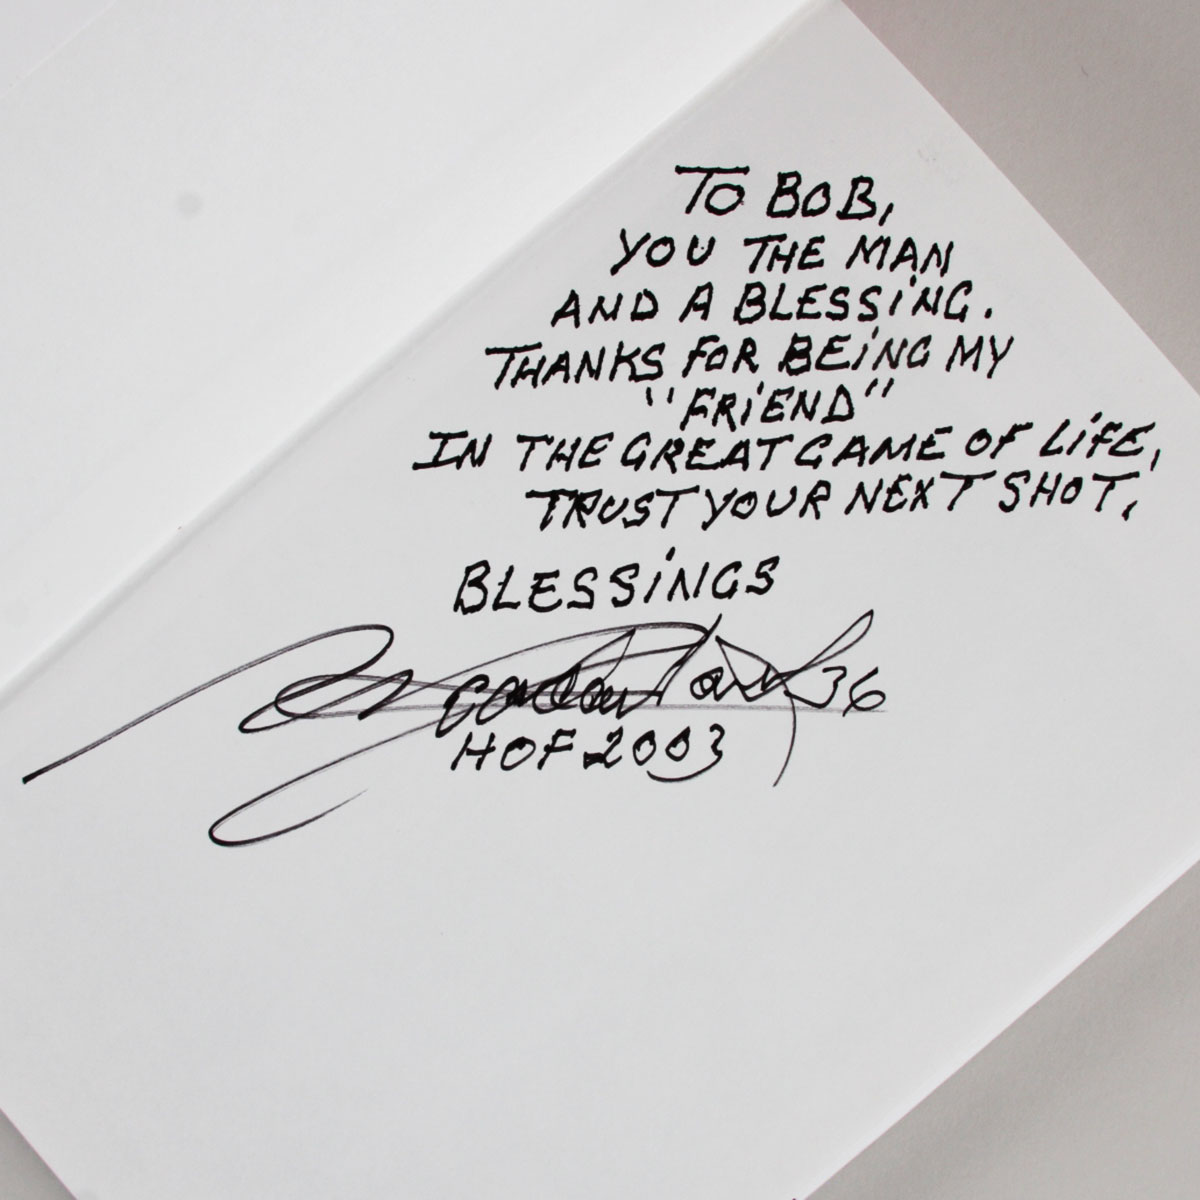 TO BOB,
YOU THE MAN
AND A BLESSiNG.
THANKS FOR BEiNG MY
"FRiEND"
IN THE GREAT GAME OF LiFE,
TRUST YOUR NEXT SHOT,
BLESSiNGS
36
HOF 2003